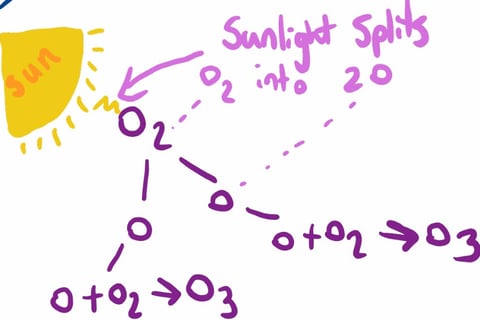 sun
Sunlight Splits
O₂ into 2O
O₂
O
O
O+O₂→O₃
O+O₂→O₃